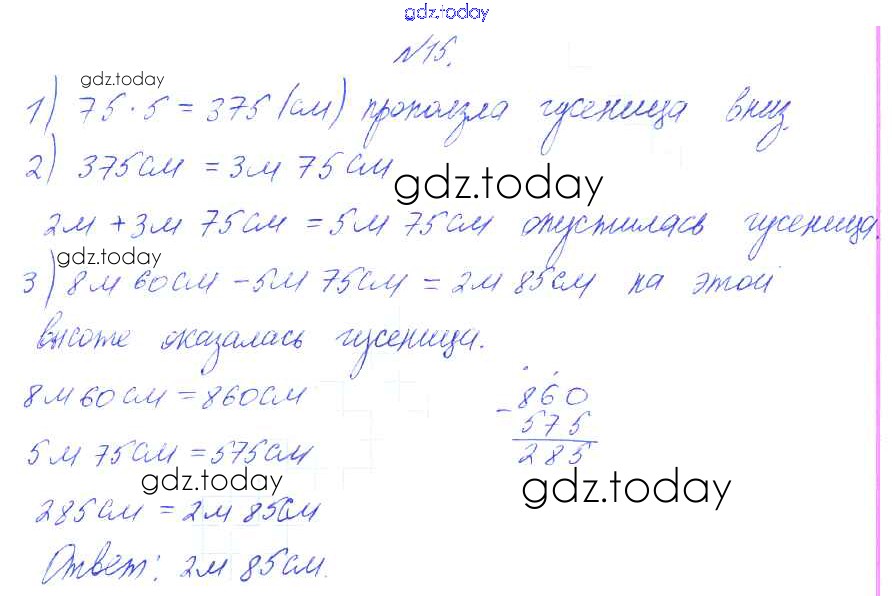 gdz.today
№15.
gdz.today
1) 75 · 5 = 375 (см) проползла гусеница вниз.
2) 375см = 3м 75см
gdz.today
2м + 3м 75см = 5м 75см опустилась гусеница.
gdz.today
3) 8м 60см - 5м 75см = 2м 85см на этой
высоте оказалась гусеница.
8м 60см = 860см
5м 75см = 575см
285см = 2м 85см
- 860
575
285
gdz.today
gdz.today
Ответ: 2м 85см.